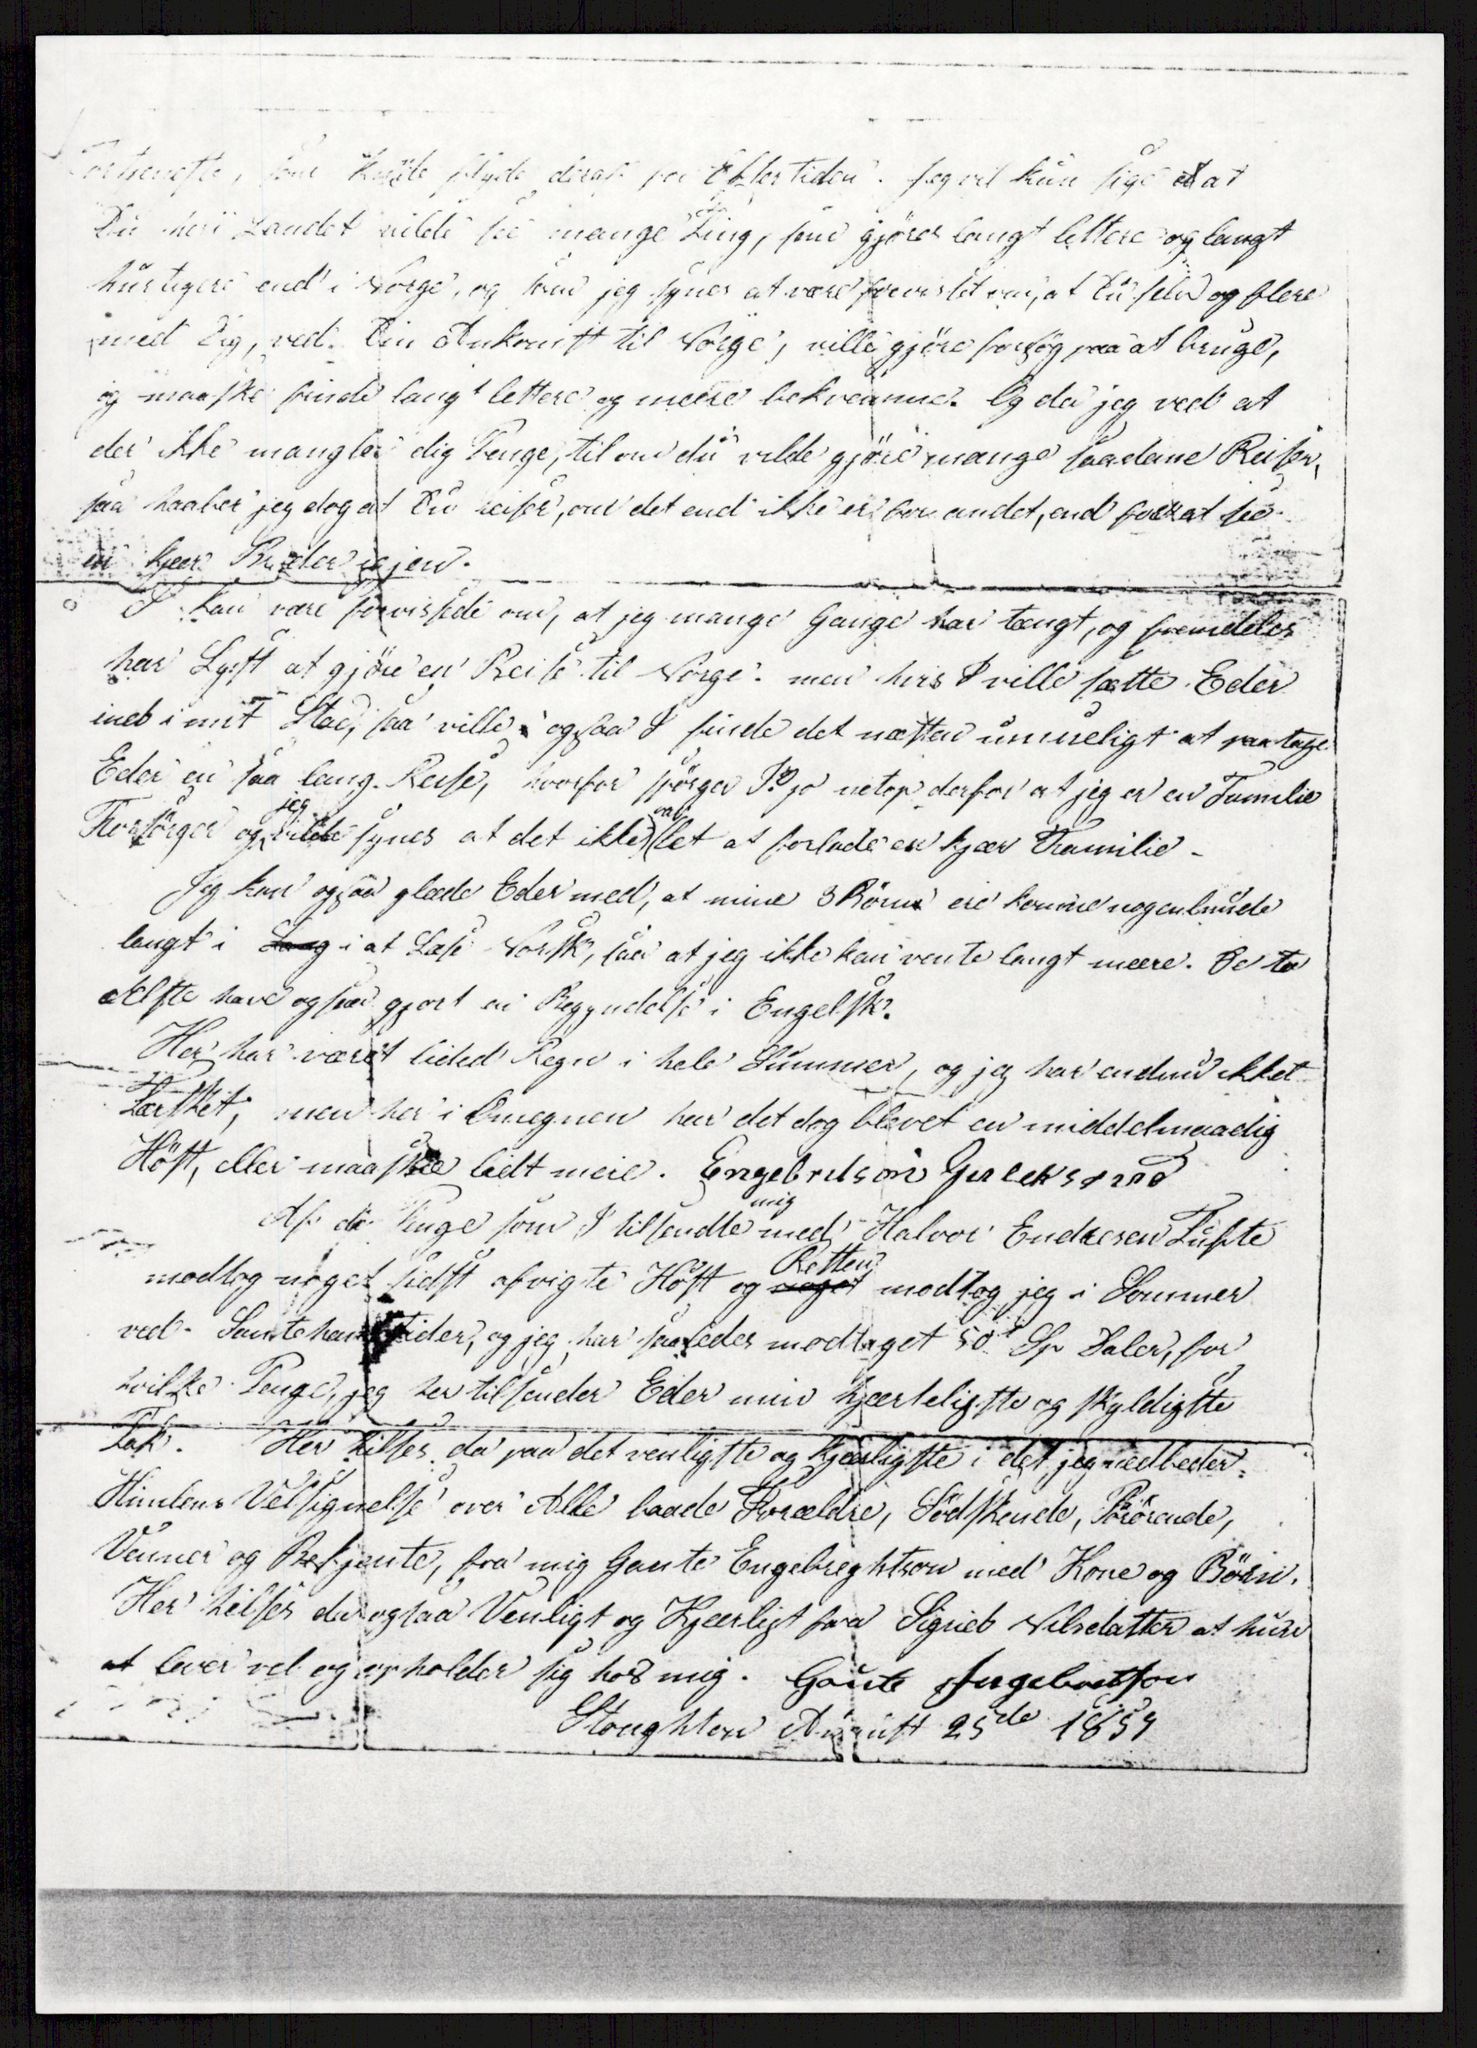 som kunde flyde deraf for Eftertiden. Jeg vil kun sige at
Du her i Landet vilde see mange Ting, som gjöres langt lettere og langt
hurtigere end i Norge, og som jeg synes at være forvisset om, at Du selv og flere
med Dig, ved Din Ankomst til Norge, ville gjöre forsög paa at bruge,
og maaske finde langt lettere og meere bekvemme. Og da jeg ved at
der ikke mangler dig Penge, til om du vilde gjöre mange saadane Reiser,
saa haaber jeg dog at Du reiser, om det end ikke er for andet, end for at see
en kjær Broder igjen.
I kan være forvissede om, at jeg mange Gange har tængt, og fremdeles
har Lyst at gjöre en Reise til Norge. men hvis I ville sætte Eder
ind i mit Sted, saa ville ogsaa I finde det næsten umueligt at paatage
Eder en saa lang Reise, hvorfor spörger I? jo netop derfor at jeg er en Familie
Forsörger og jeg vilde synes at det ikke var let at forlade en kjær Familie -
Jeg kan ogsaa glæde Eder med, at mine 3 Börn ere komne nogenlunde
langt i at Læse Norsk, saa at jeg ikke kan vente langt meere. De to
ælste have ogsaa gjort en Begyndelse i Engelsk.
Her har været lided Regn i hele Summer, og jeg har endnu ikket
Tærsket; men her i Omegnen har det dog blevet en middelmaadig
Höst, eller maaskee lidt mere. Engebritson
Af de Penge som I tilsendte mig med Halvor Endresen Tufte
modtog noget sidst afvigte Höst og Resten modtog jeg i Sommer
ved Sanctehans tider, og jeg har saaledes modtaget 50 Sp Daler, for
hvilke Penge, jeg her tilsender Eder min hjærteligste og skyldigste
Tak. Her hilses da paa det venligste og kjærligste i det jeg nedbeder
Himlens Velsignelse over Alle baade Forældre, Södskende, Pörörende,
Venner og Bekjente, fra mig Gaute Engebreghtson med Kone og Börn.
Her hilses du ogsaa Venligt og Kjærligt fra Sigrid Nilsdatter at hun
at lever vel og opholder sig hos mig. Gaute Ingebretson
Stoughton August 25de 1859